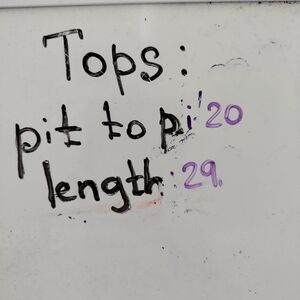 Tops:
pit to pi: 20
length: 29.